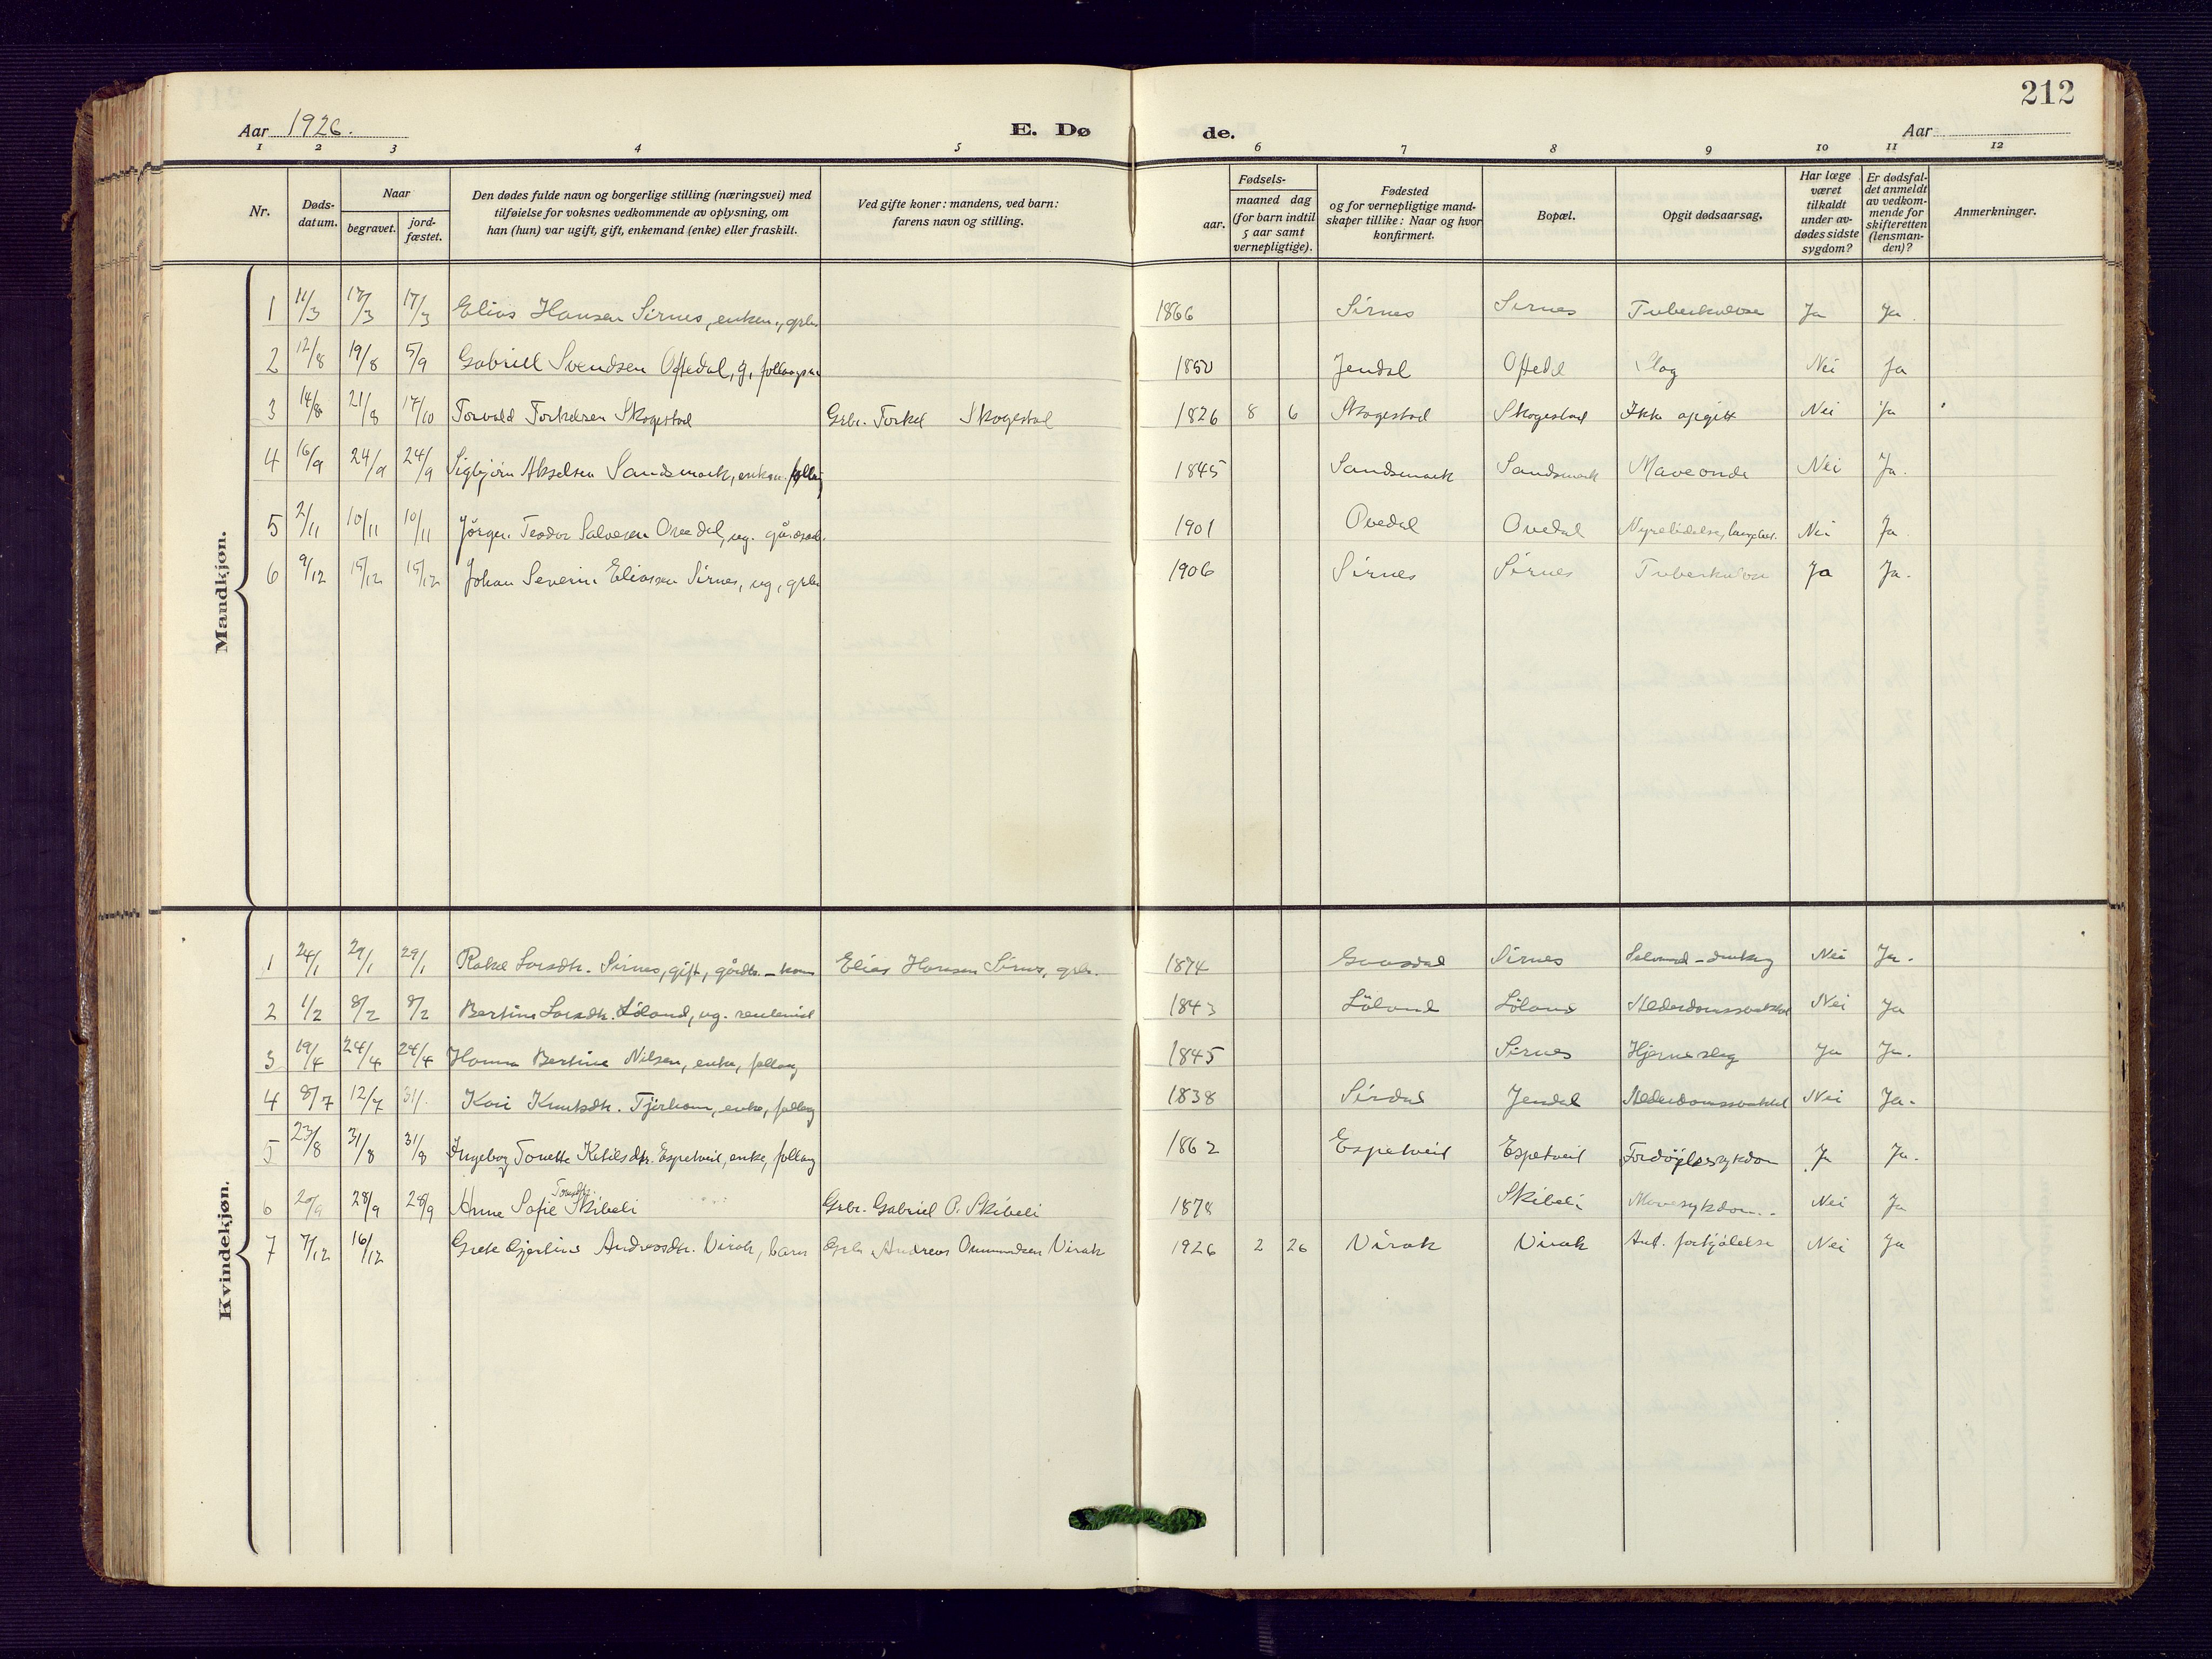 212
Aar 1926.
E. Dø de.
Aar
1 2 3 4 5 6 7 8 9 10 11 12
Nr.
Døds-
datum.
Naar
begravet.
jord-
fæstet.
Den dødes fulde navn og borgerlige stilling (næringsvei) med
tilføielse for voksnes vedkommende av oplysning, om
han (hun) var ugift, gift, enkemand (enke) eller fraskilt.
Ved gifte koner: mandens, ved barn:
farens navn og stilling.
Fødsels-
aar.
maaned dag
(for barn indtil
5 aar samt
vernepligtige).
Fødested
og for vernepligtige mand-
skaper tillike: Naar og hvor
konfirmert.
Bopæl.
Opgit dødsaarsag.
Har læge
været
tilkaldt
under av-
dødes sidste
sygdom?
Er dødsfal-
det anmeldt
av vedkom-
mende for
skifteretten
(lensman-
den)?
Anmerkninger.
Mandkjøn.
1 11/3 17/3 17/3 Elias Hansen Sirnes, enkem., grbr 1866 Sirnes Sirnes Tuberkulose Ja Ja
2 12/8 19/8 5/9 Gabriell Svendsen Oftedal, g, 1850 Jendal Oftedal Slag Nei Ja
3 14/8 21/8 17/10 Torvald Torkelsen Skogestad Grbr. Torkel Skogestad 1826 8 6 Skogestad Skogestad Ikke opgitt Nei Ja
4 16/9 24/9 24/9 Sigbjørn Akselsen Sandsmark, enkem. follaug 1845 Sandsmark Sandsmark Maveonde Nei Ja.
5 2/11 10/11 10/11 Jörgen Teodor Salvesen Ovedal, ug. 1901 Ovedal Ovedal Nyrelidelse, Nei Ja
6 9/12 15/12 15/12 Johan Severin Eliassen Sirnes, ug, grbr 1906 Sirnes Sirnes Tuberkulose Ja Ja.
Kvindekjøn.
1 24/1 29/1 29/1 Rakel Larsdtr. Sirnes, gift, gårdbr. - kone Elias Hansen Sirnes, grbr. 1874 Sirnes Nei Ja.
2 1/2 8/2 8/2 Bertine Larsdtr. Löland, ug. 1843 Löland Löland Alderdomssvakhet Nei Ja
3 19/4 24/4 24/4 Hanna Bertine Nilsen, enke, follaug 1845 Sirnes Hjerneslag Ja Ja.
4 8/7 12/7 31/ Kari Knutsdtr. Tjörhom, enke, follaug 1838 Sirdal Jendal Alderdomssvakhet Nei Ja.
5 23/8 31/8 31/8 Ingeborg Tonette Ketilsdtr. Espetveit, enke, follaug 1862 Espetveit Espetveit Fordöjelsessykdom Ja Ja.
6 20/9 28/9 28/9 Anne Sofie Skibeli Grbr. Gabriel P. Skibeli 1878 Skibeli Mavesykdom. Nei Ja
7 7/12 16/12 Grete Gjertine Andreasdtr. Virak, barn Grbr Andreas Ommundsen Virak 1926 2 26 Virak Virak Ant. forkjölelse Nei Ja